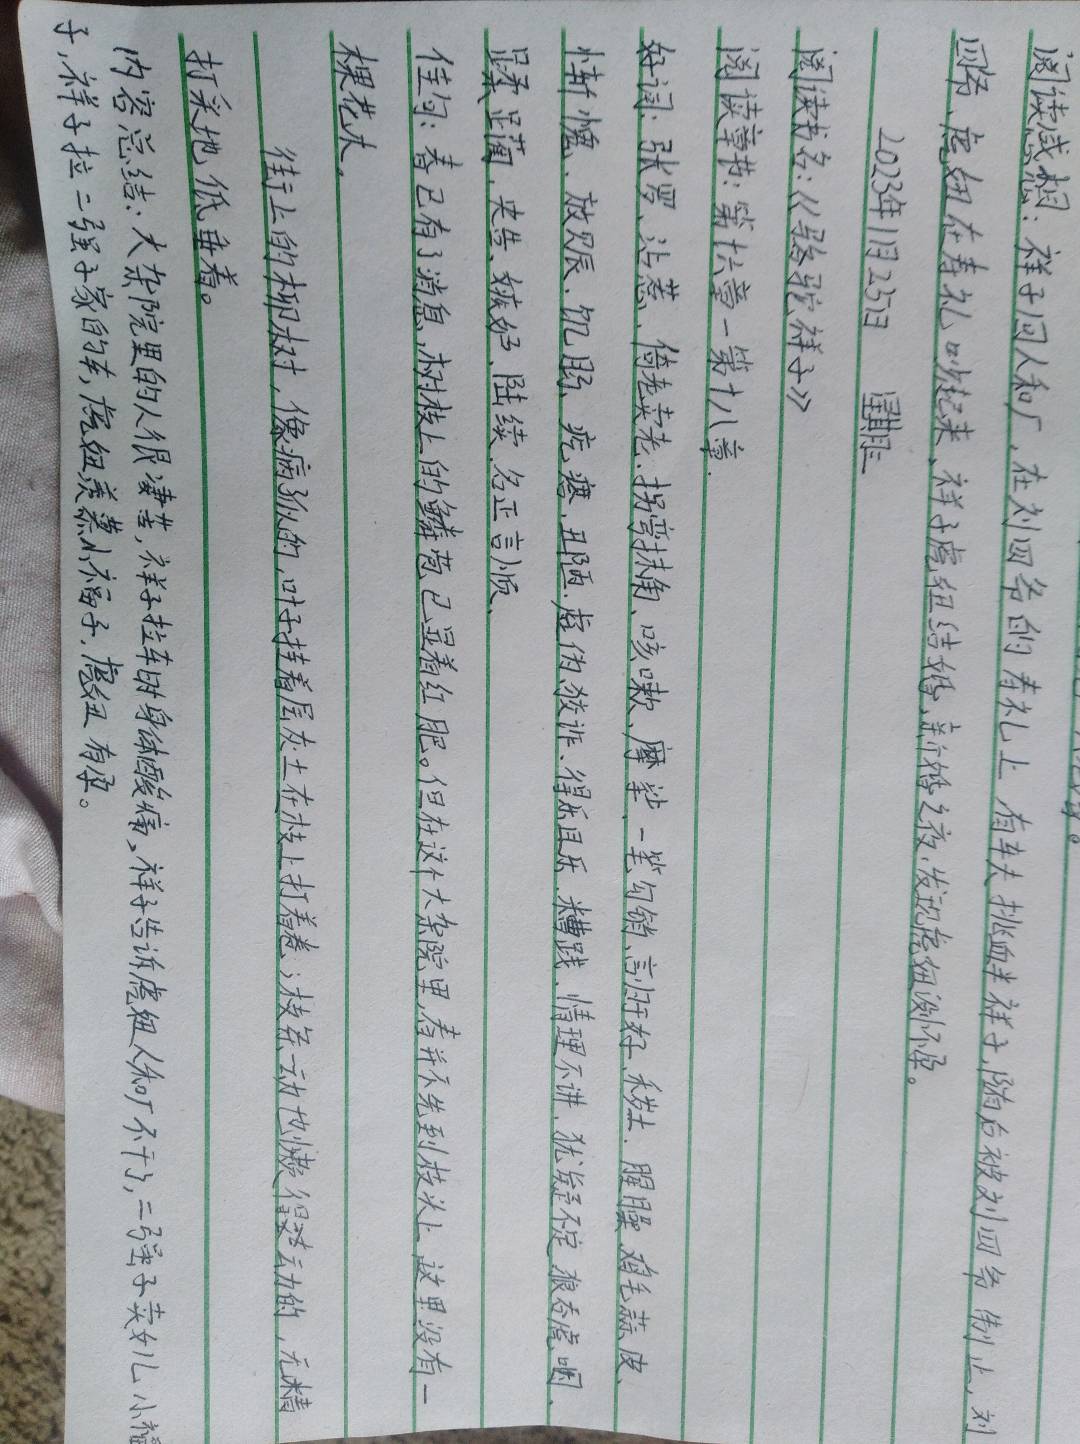 阅读感想：祥子回人和厂，在刘四爷的寿礼上 有车夫挑衅祥子，随后被刘四爷制止，刘
四爷、虎妞在寿礼吵起来、祥子虎妞结婚，新婚之夜，发现虎妞没怀孕。
2023年1月25日 星期三
阅读书名：《骆驼祥子》
阅读章节：第十六章一第十八章.
好词：张罗、沾惹、倚老卖老、拐弯抹角、咳嗽、摩挲、一笔勾销、言归于好、秽土、腥臊、鸡毛蒜皮、
惭愧、放赈、饥肠、疙瘩、丑陋、虚伪狡诈、得乐且乐、糟践、情理不讲、犹疑不定、狼吞虎咽、
央告、嫉妒、陆续、名正言顺、
佳句：春已有了消息，树枝上的鳞苞已显着红肥。但在这个大杂院里，春并不先到枝头上，这里没有一
棵花木。
街上的柳树，像病了似的，叶子挂着层灰土在枝上打着卷；枝条一动也懒得动的，无精
打采地低垂着。
内容总结：大杂院里的人很凄苦，祥子拉车时身体酸痛，祥子告诉虎妞人和厂不干了，二强子卖女儿小福
子，祥子拉二强子家的车，虎妞羡慕小福子，虎妞有孕。